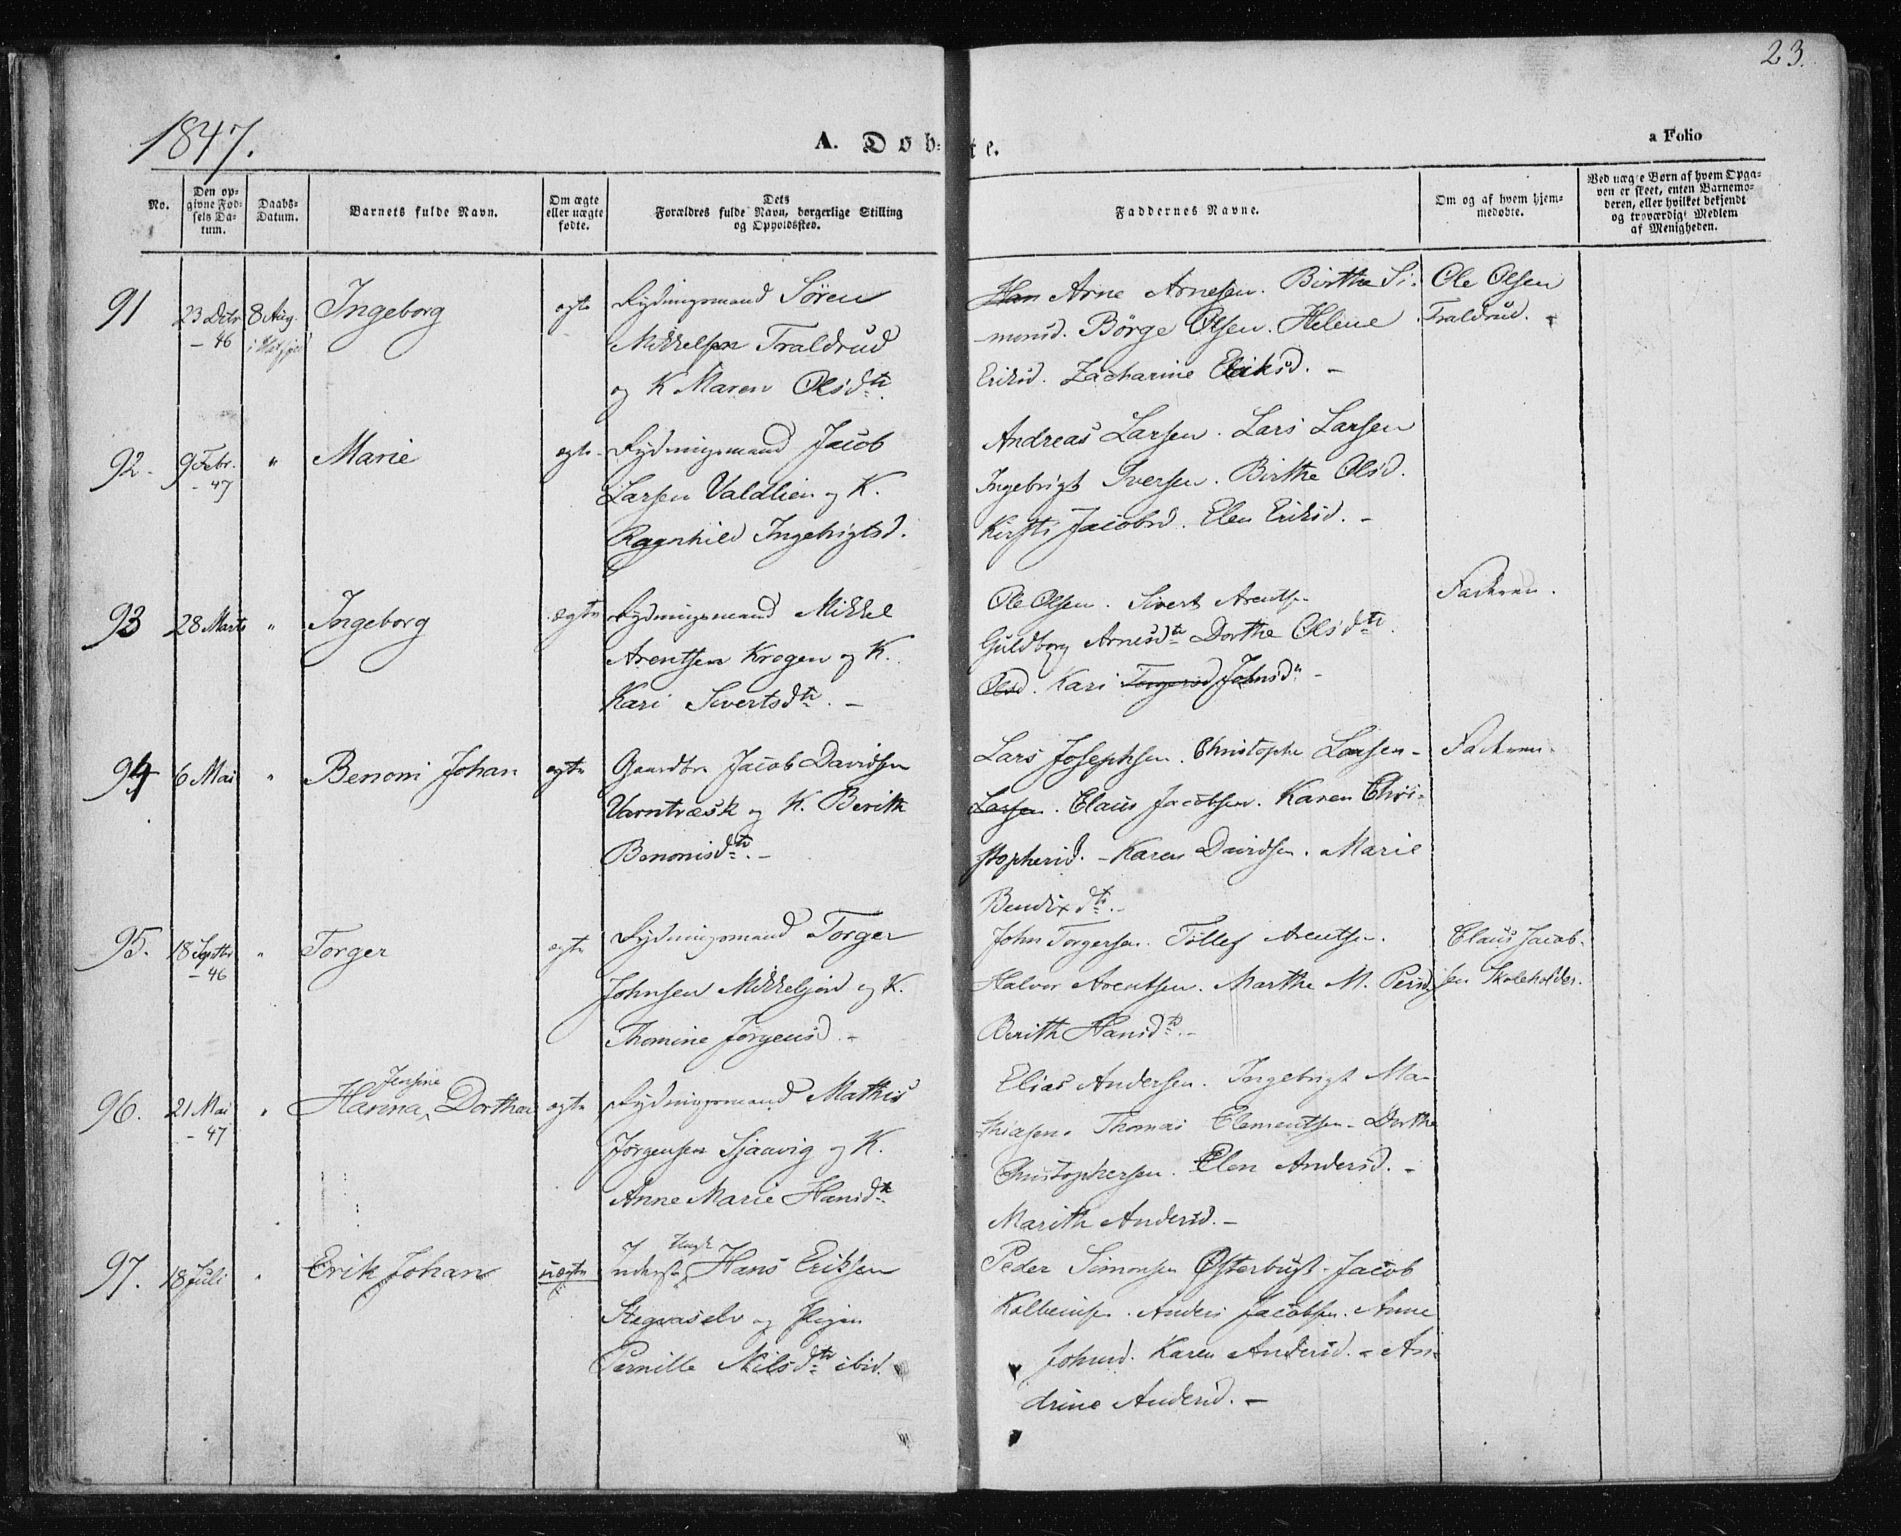 23.
1847.
A. Døbte.
a Folio
No.
Den opgivne Fødsels Datum.
Daabs-Datum.
Barnets fulde Navn.
Om ægte eller uægte fødte.
Dets Forældres fulde Navn, borgerlige Stilling og Opholdssted.
Faddernes Navne.
Om og af hvem hjemmedøbte.
Ved uægte Børn af hvem Opgaven er skeet, enten Barnemoderen, eller hvilket bekjendt og troværdigt Medlem af Menigheden.
91 23 Octr 46 8 Aug. Ingeborg ægte Rydningsmand Sören
Mikkelsen Traldrud
og K Maren Olsdtr.
Han Arne Arnesen. Birthe Si-
monsd. Börge Olsen. Helene
Eriksd. Zacharine Eriksd. -
Ole Olsen
Traldrud.
92. 9 Febr. 47 " Marie ægte Rydningsmand Jacob
Larsen Valdlien og K.
Ragnhild Ingebrigtsd.
Andreas Larsen. Lars Larsen
Ingebrigt Iversen. Birthe Olsd.
Kirsti Jacobsd. Elen Eriksd. -
93 28 Marts " Ingeborg ægte Rydningsmand Mikkel
Arentsen Krogen og K.
Kari Sivertsdtr. -
Ole Olsen. Sivert Arentsen
Guldborg Arnesdtr Dorthe Olsdtr.
Olsd. Kari Torgersd Johnsd. -
Faderen.
94 6 Mai " Benoni Johan ægte Gaardbr. Jacob Davidsen
Varntræsk og K. Berith
Benonisdtr. -
Lars Josephsen. Christopher Larsen -
Larsen. Claus Jacobsen. Karen Chri-
stophersd. - Karen Davidsen. Marie
Bendixdtr. -
Faderen.
95. 18 Septbr 46 " Torger ægte Rydningsmand Torger
Johnsen Mikkeljord og K.
Thomine Jörgensd. -
John Torgersen. Tollef Arentsen.
Halvor Arentsen. Marthe M. Persd.
Berith Hansdtr. -
Claus Jacob-
sen Skoleholder.
96. 21 Mai 47 " Hanna Jensine Dorthea ægte Rydningsmand Mathis
Jörgensen Sjaavig og K.
Anne Marie Hansdtr
Elias Andersen. Ingebrigt Ma-
thiasen. Thomas Clementsen - Dorthe
Christophersen. Elen Andersd. -
Marith Andersd. -
97. 18 Juli " Erik Johan uægte Hans Eriksen
Stegvaselv og Pigen
Pernille Nilsdtr ibid.
Peder Simonsen Østerbugt - Jacob
Kolbeinsen. Anders Jacobsen. Anne
Johnsd. Karen Andersd. - An-
drine Andersd. -